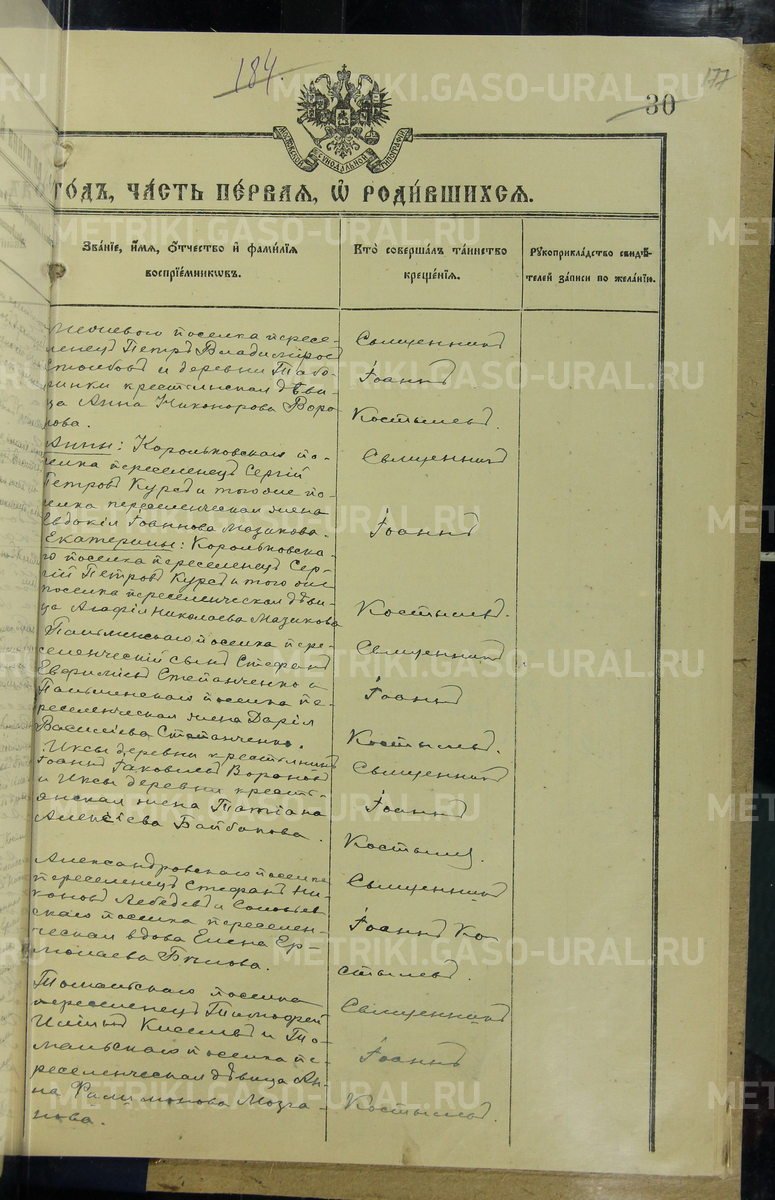 184.
177
30
МОСКОВСКОЙ СѴНОДАЛЬНОЙ ТИПОГРАФІИ
го́дъ, ча́сть пе́рвая, ѡ҆ роди́вшихся.
Зва́ніе, и҆́мя, ѻ҆́тчество и҆ фами́лія
воспріе́мниковъ.
Кто̀ соверша́лъ та́инство
креще́нія.
Рукоприкла́дство свидѣ́-
телей за́писи по жела́нію.
поселка пересе-
ленецъ Петръ Владиміровъ
Столбовъ и деревни Табо-
ринки крестьянская дѣви-
ца Анна Никонорова Воро-
нова.
Священникъ
Іоаннъ
Костылевъ.
Анны: Корольковскаго по-
селка переселенецъ Сергій
Петровъ Курсъ и того же по-
селка переселенческая жена
Евдокія Іоаннова Мазикова.
Екатерины: Корольковска-
го поселка переселенецъ Сер-
гій Петровъ Курсъ и того же
поселка переселенческая дѣви-
ца Агафія Николаева Мазикова
Священникъ
Іоаннъ
Костылевъ.
поселка пере-
селенческій сынъ Стефанъ
Евфиміевъ Степанченко и
поселка пе-
реселенческая жена Дарія
Васильева Степанченко.
Священникъ
Іоаннъ
Костылевъ.
Иксы деревни крестьянинъ
Іоаннъ Іаковлевъ Вороновъ
и Иксы деревни кресть-
янская жена Татіана
Алексіева Байбакова.
Священникъ
Іоаннъ
Костылевъ.
Александровскаго поселка
переселенецъ Стефанъ Ни-
коновъ Лебедевъ и Соловьев-
скаго поселка переселен-
ческая вдова Елена Ер-
молаева Бѣлова.
Священникъ
Іоаннъ Ко-
стылевъ.
поселка
переселенецъ Тимофей
Ильинъ Киселевъ и То-
мальскаго поселка пе-
реселенческая дѣвица Ан-
на Филимонова Мозга-
нова.
Священникъ
Іоаннъ
Костылевъ.
METRIKI.GASO-URAL.RU